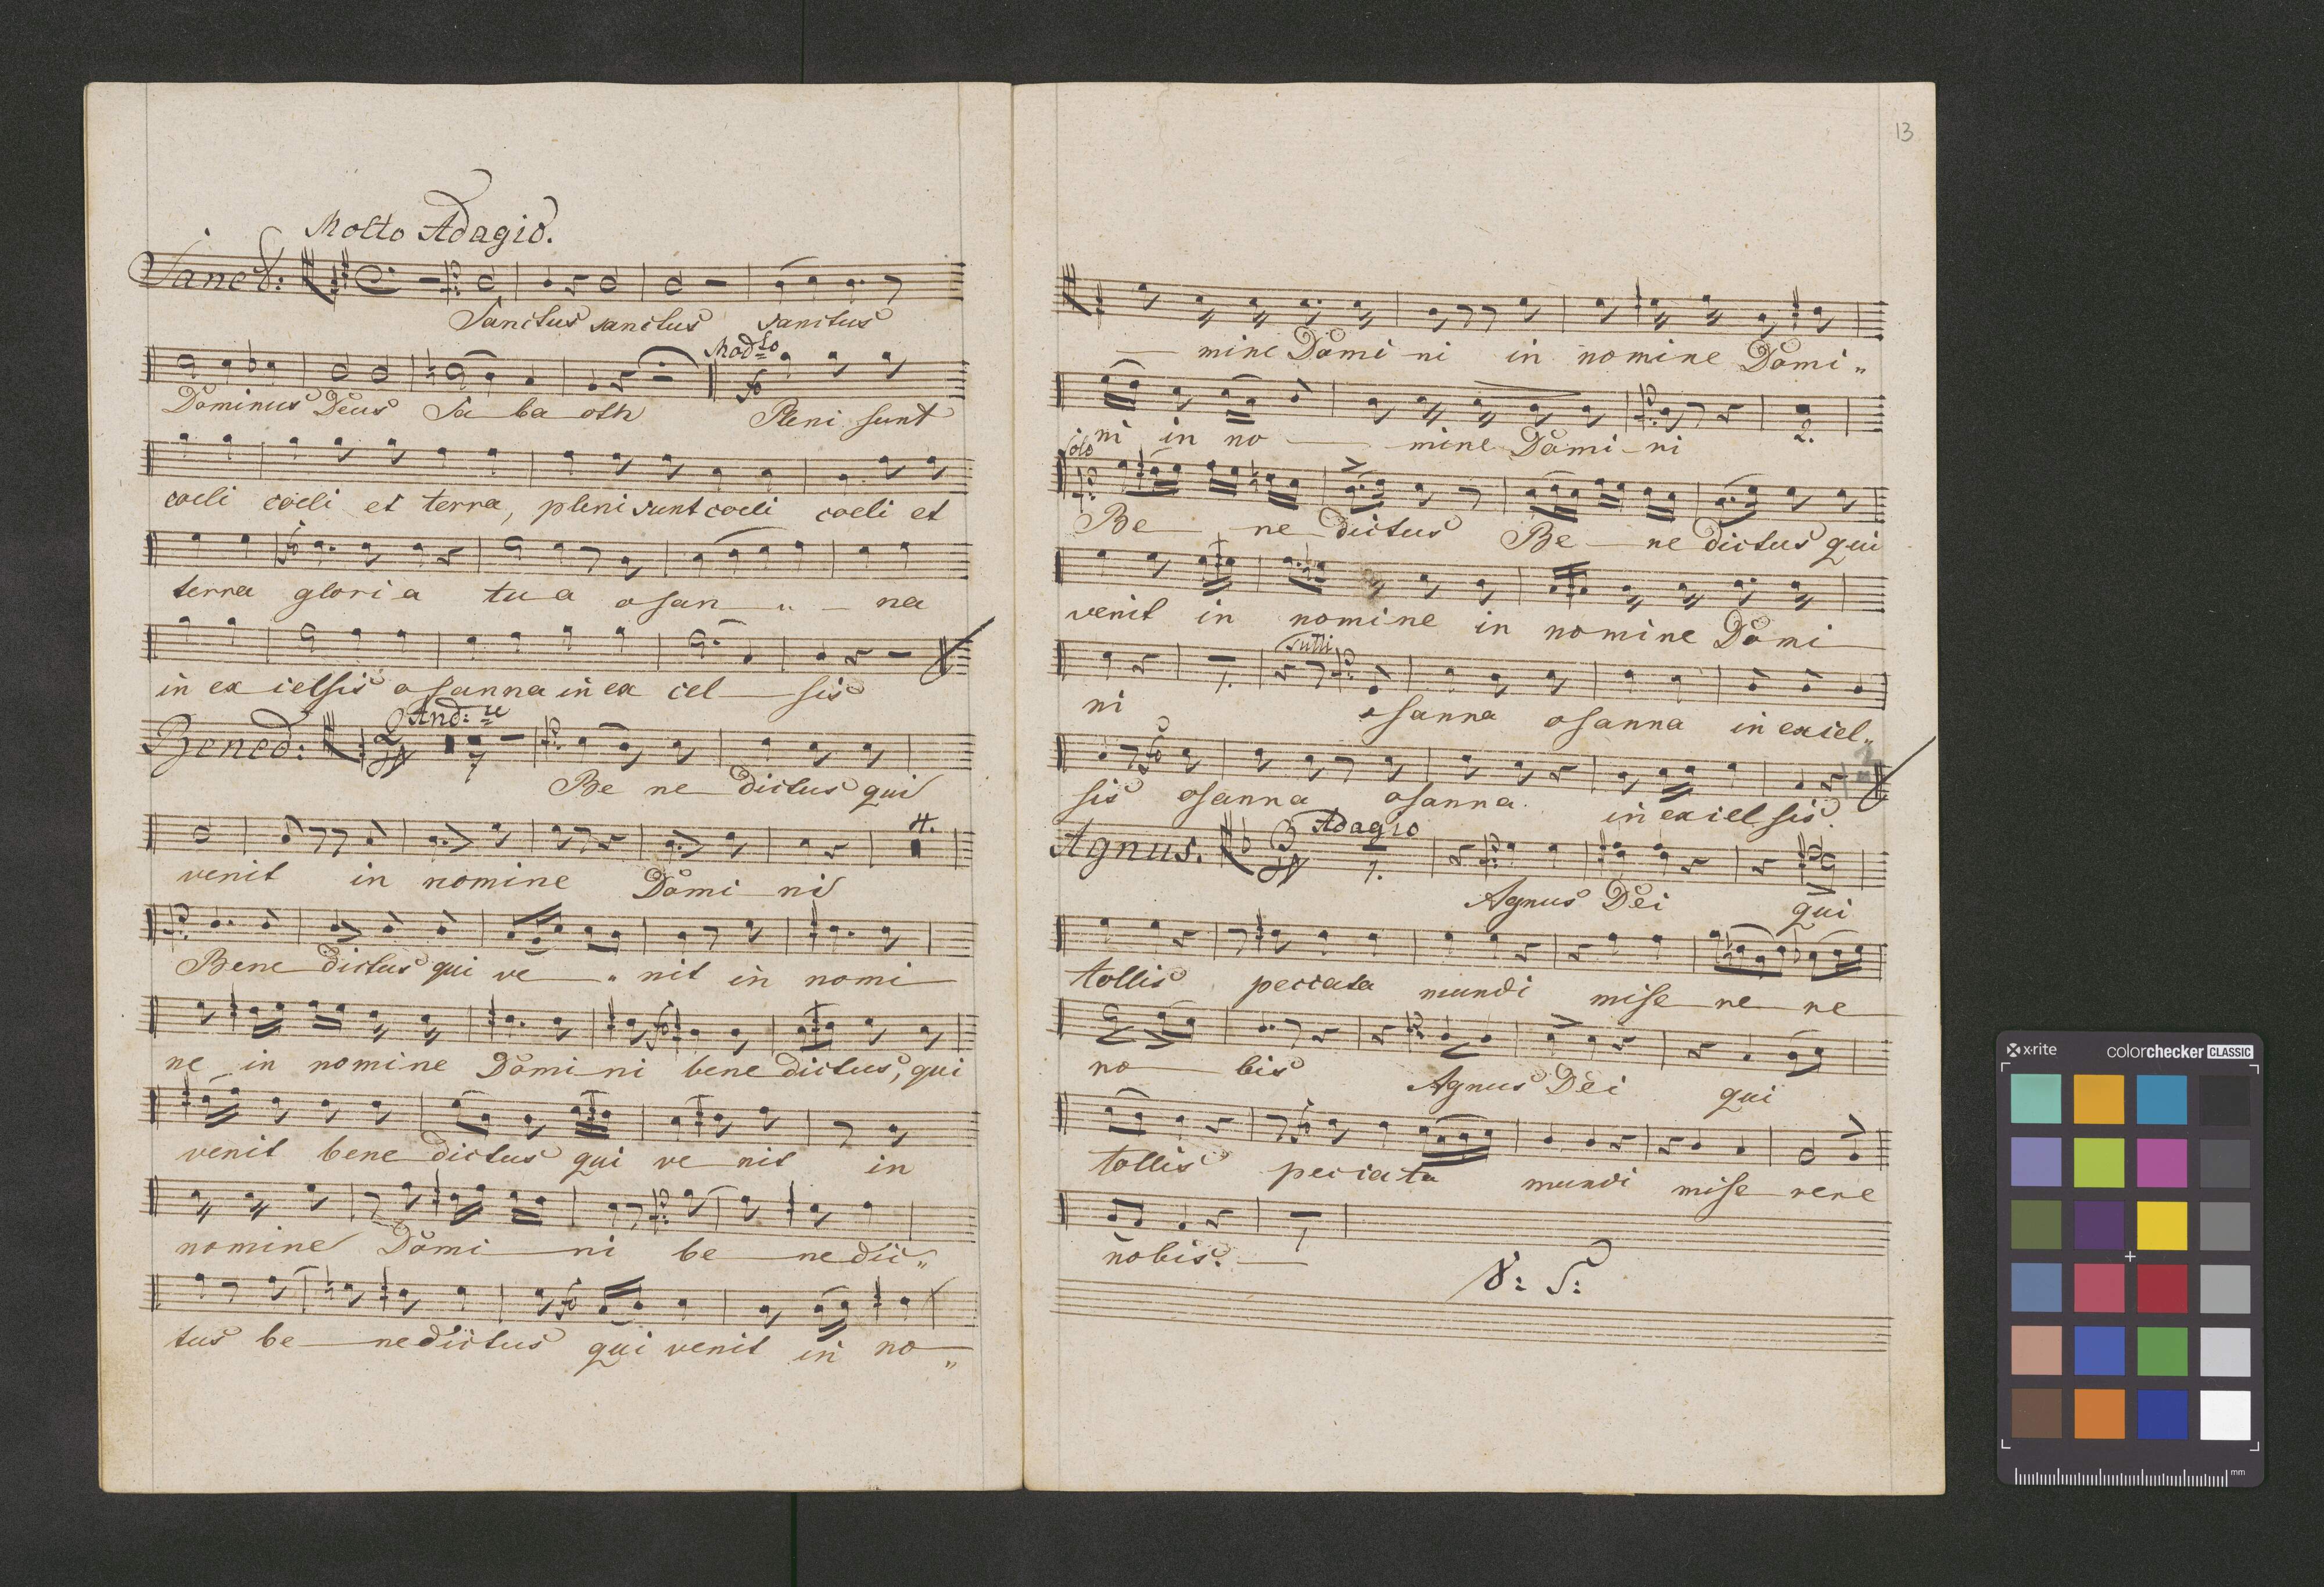 Molto Adagio.
Sanct:
Sanctus sanctus sanctus
Mod.to
Dominus Deus Sa ba oth Pleni sunt
coeli coeli et terra, pleni sunt coeli coeli et
terra gloria tua osan " na
in excelsis osanna in ex cel sis
And:te
Bened: 7
Be ne dictus qui
4.
venit in nomine Domi ni
Bene dictus qui ve " nit in nomi
ne in nomine Domini bene dictus, qui
venit bene dictus qui ve nit in
nomine Domi ni be nedic"
tus be nedictus qui venit in no"
13
mine Domi ni in nomine Domi"
2.
ni in no mine Domi ni
Solo
Be ne dictus Be ne dictus qui
venit in nomine in nomine Domi
1. Tutti
ni osanna osanna in excel"
sis osanna osanna in excelsis.
Adagio
Agnus. 1.
Agnus Dei qui
tollis peccata mundi mise re re
no bis Agnus Dei qui
tollis peccata mundi mise rere
1
nobis.
V: S:
x-rite colorchecker CLASSIC
mm